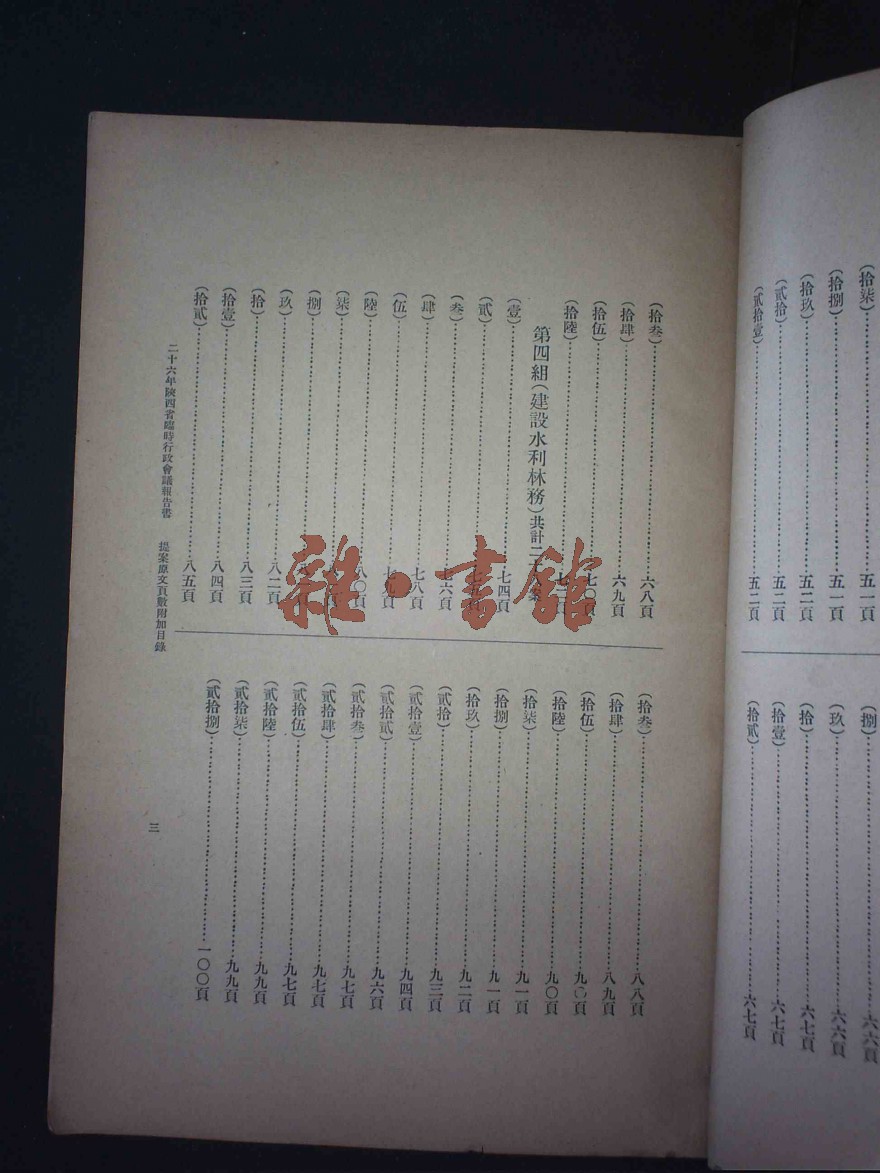 (拾柒)……五一頁
(拾捌)……五一頁
(拾玖)……五二頁
(貳拾)……五二頁
(貳拾壹)……五二頁
(捌)……六六頁
(玖)……六六頁
(拾)……六七頁
(拾壹)……六七頁
(拾貳)……六七頁
(拾叁)……六八頁
(拾肆)……六九頁
(拾伍)……七〇頁
(拾陸)……七頁
第四組(建設水利林務)共計二十八案
(壹)……七四頁
(貳)……頁
(叁)……七六頁
(肆)……七八頁
(伍)……七九頁
(陸)……八〇頁
(柒)……頁
(捌)……八頁
(玖)……八二頁
(拾)……八三頁
(拾壹)……八四頁
(拾貳)……八五頁
(拾叁)……八八頁
(拾肆)……八九頁
(拾伍)……九〇頁
(拾陸)……九〇頁
(拾柒)……九一頁
(拾捌)……九一頁
(拾玖)……九二頁
(貳拾)……九三頁
(貳拾壹)……九四頁
(貳拾貳)……九六頁
(貳拾叁)……九七頁
(貳拾肆)……九七頁
(貳拾伍)……九七頁
(貳拾陸)……九九頁
(貳拾柒)……九九頁
(貳拾捌)……一〇〇頁
二十六年陝西省臨時行政會議報告書 提案原文頁數附加目錄 三
雜·書館